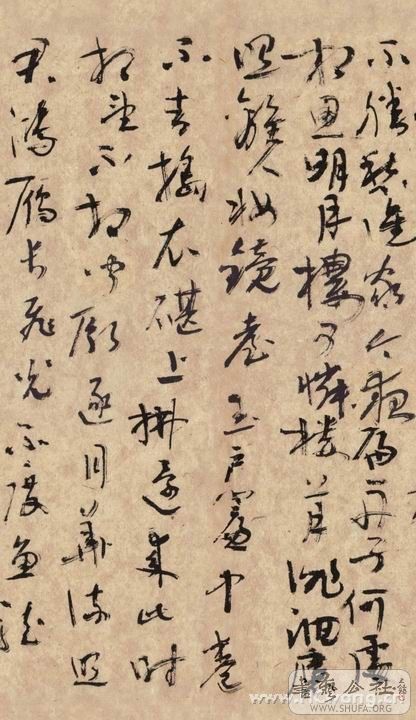 不勝愁誰家今夜扁舟子何處
相思明月樓可憐樓上月徘徊應
照離人妝鏡臺玉戶簾中卷
不去擣衣砧上拂還來此時
相望不相聞願逐月華流照
君鴻雁長飛光不度魚龍
公社
WWW.SHUFA.ORG